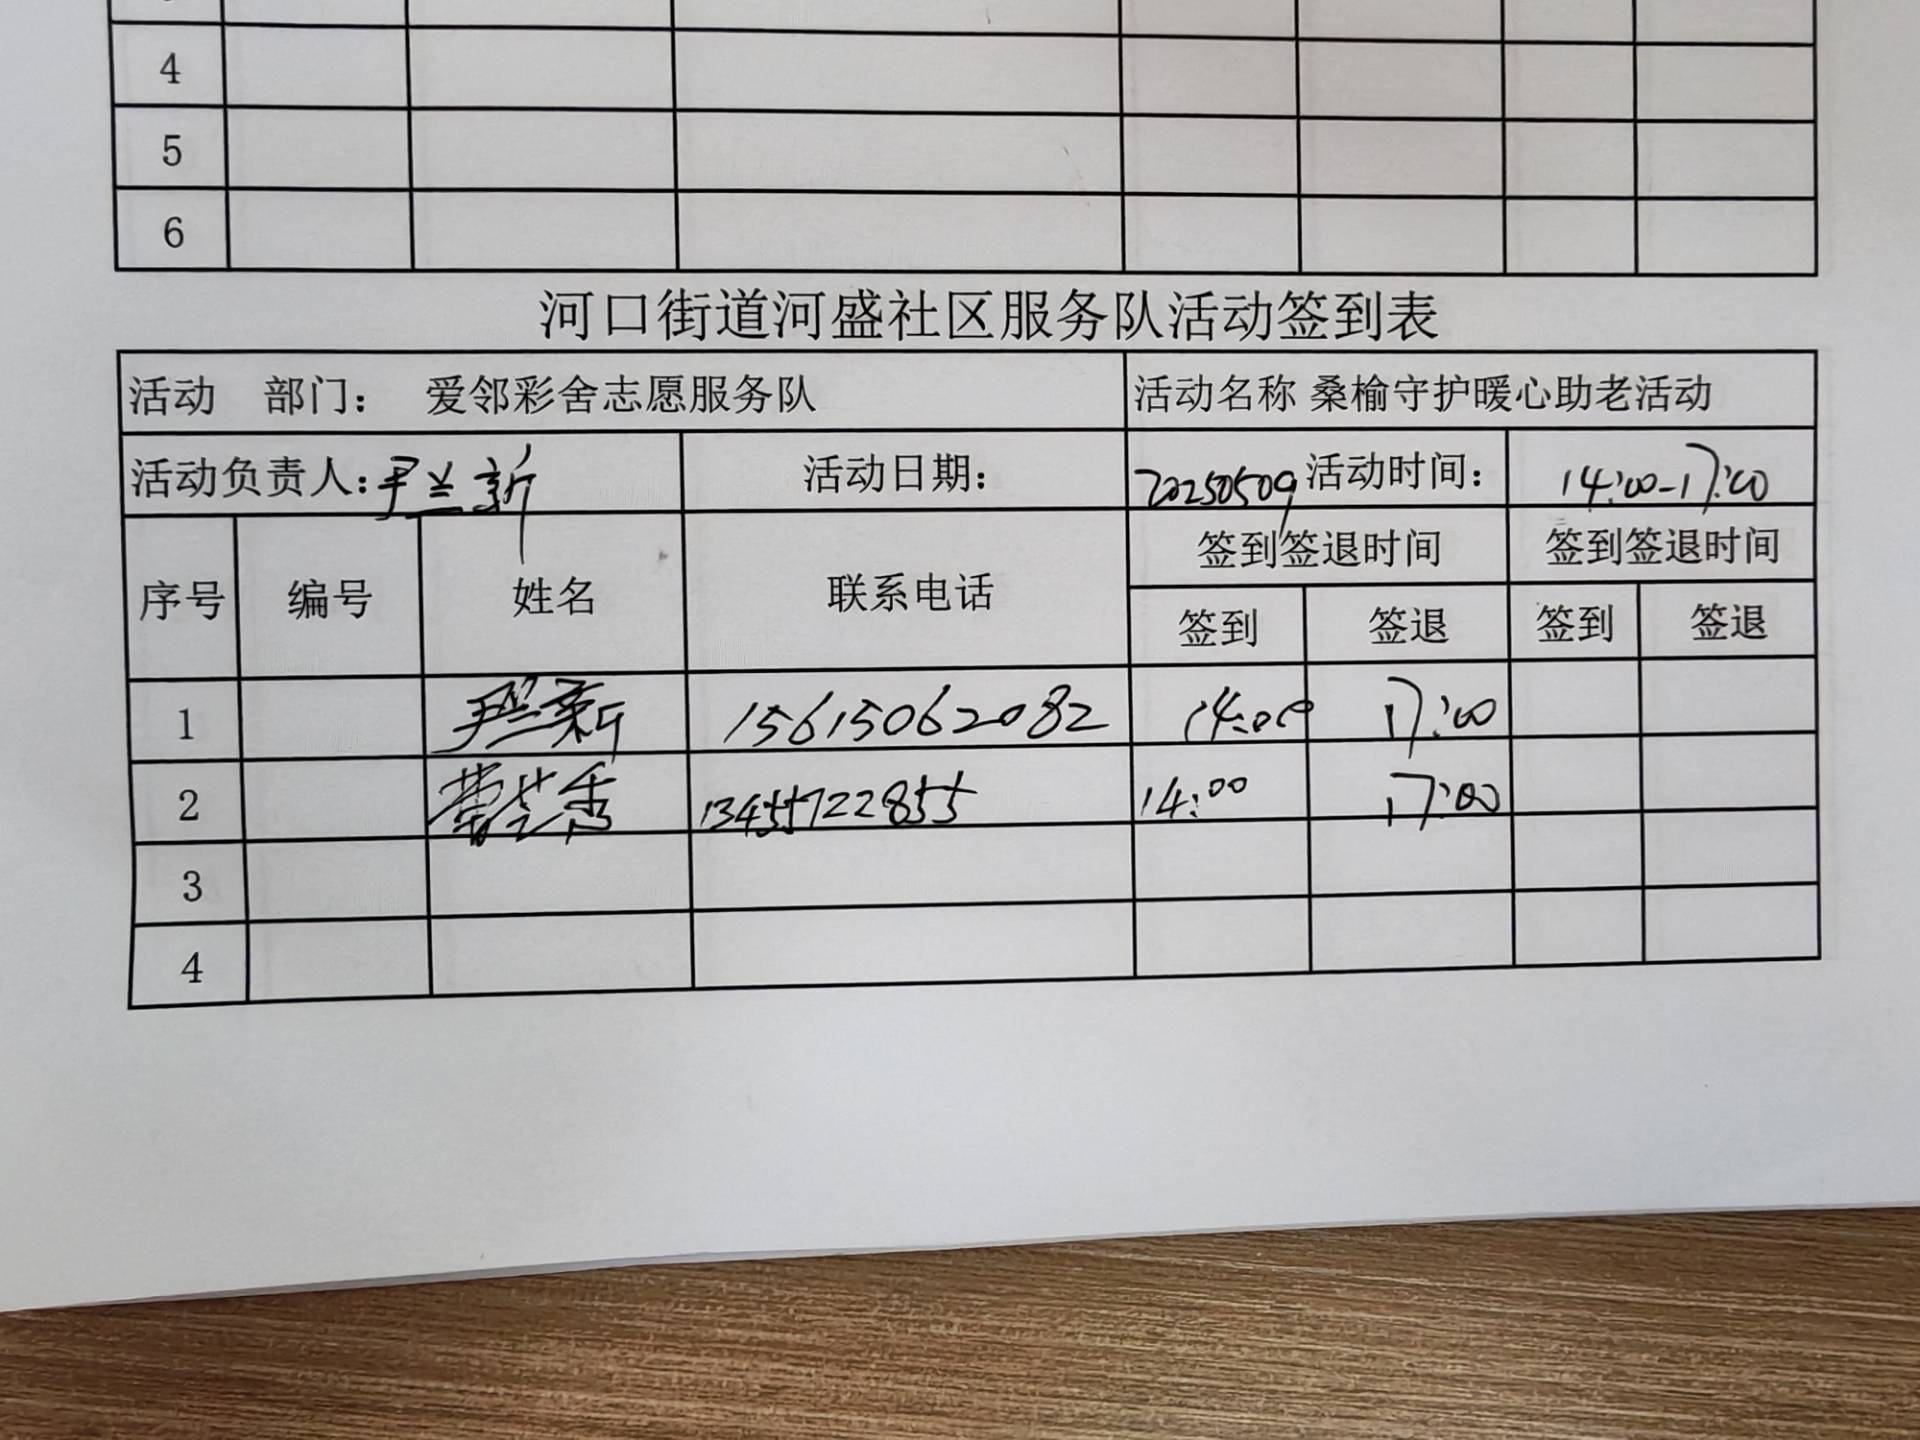 4
5
6
河口街道河盛社区服务队活动签到表
活动 部门： 爱邻彩舍志愿服务队 活动名称 桑榆守护暖心助老活动
活动负责人：尹兰新 活动日期： 20250509 活动时间： 14:00-17:00
序号 编号 姓名 联系电话 签到签退时间 签到签退时间
签到 签退 签到 签退
1 尹兰新 15615062082 14:00 17:00
2 芸秀 13455722855 14:00 17:00
3
4